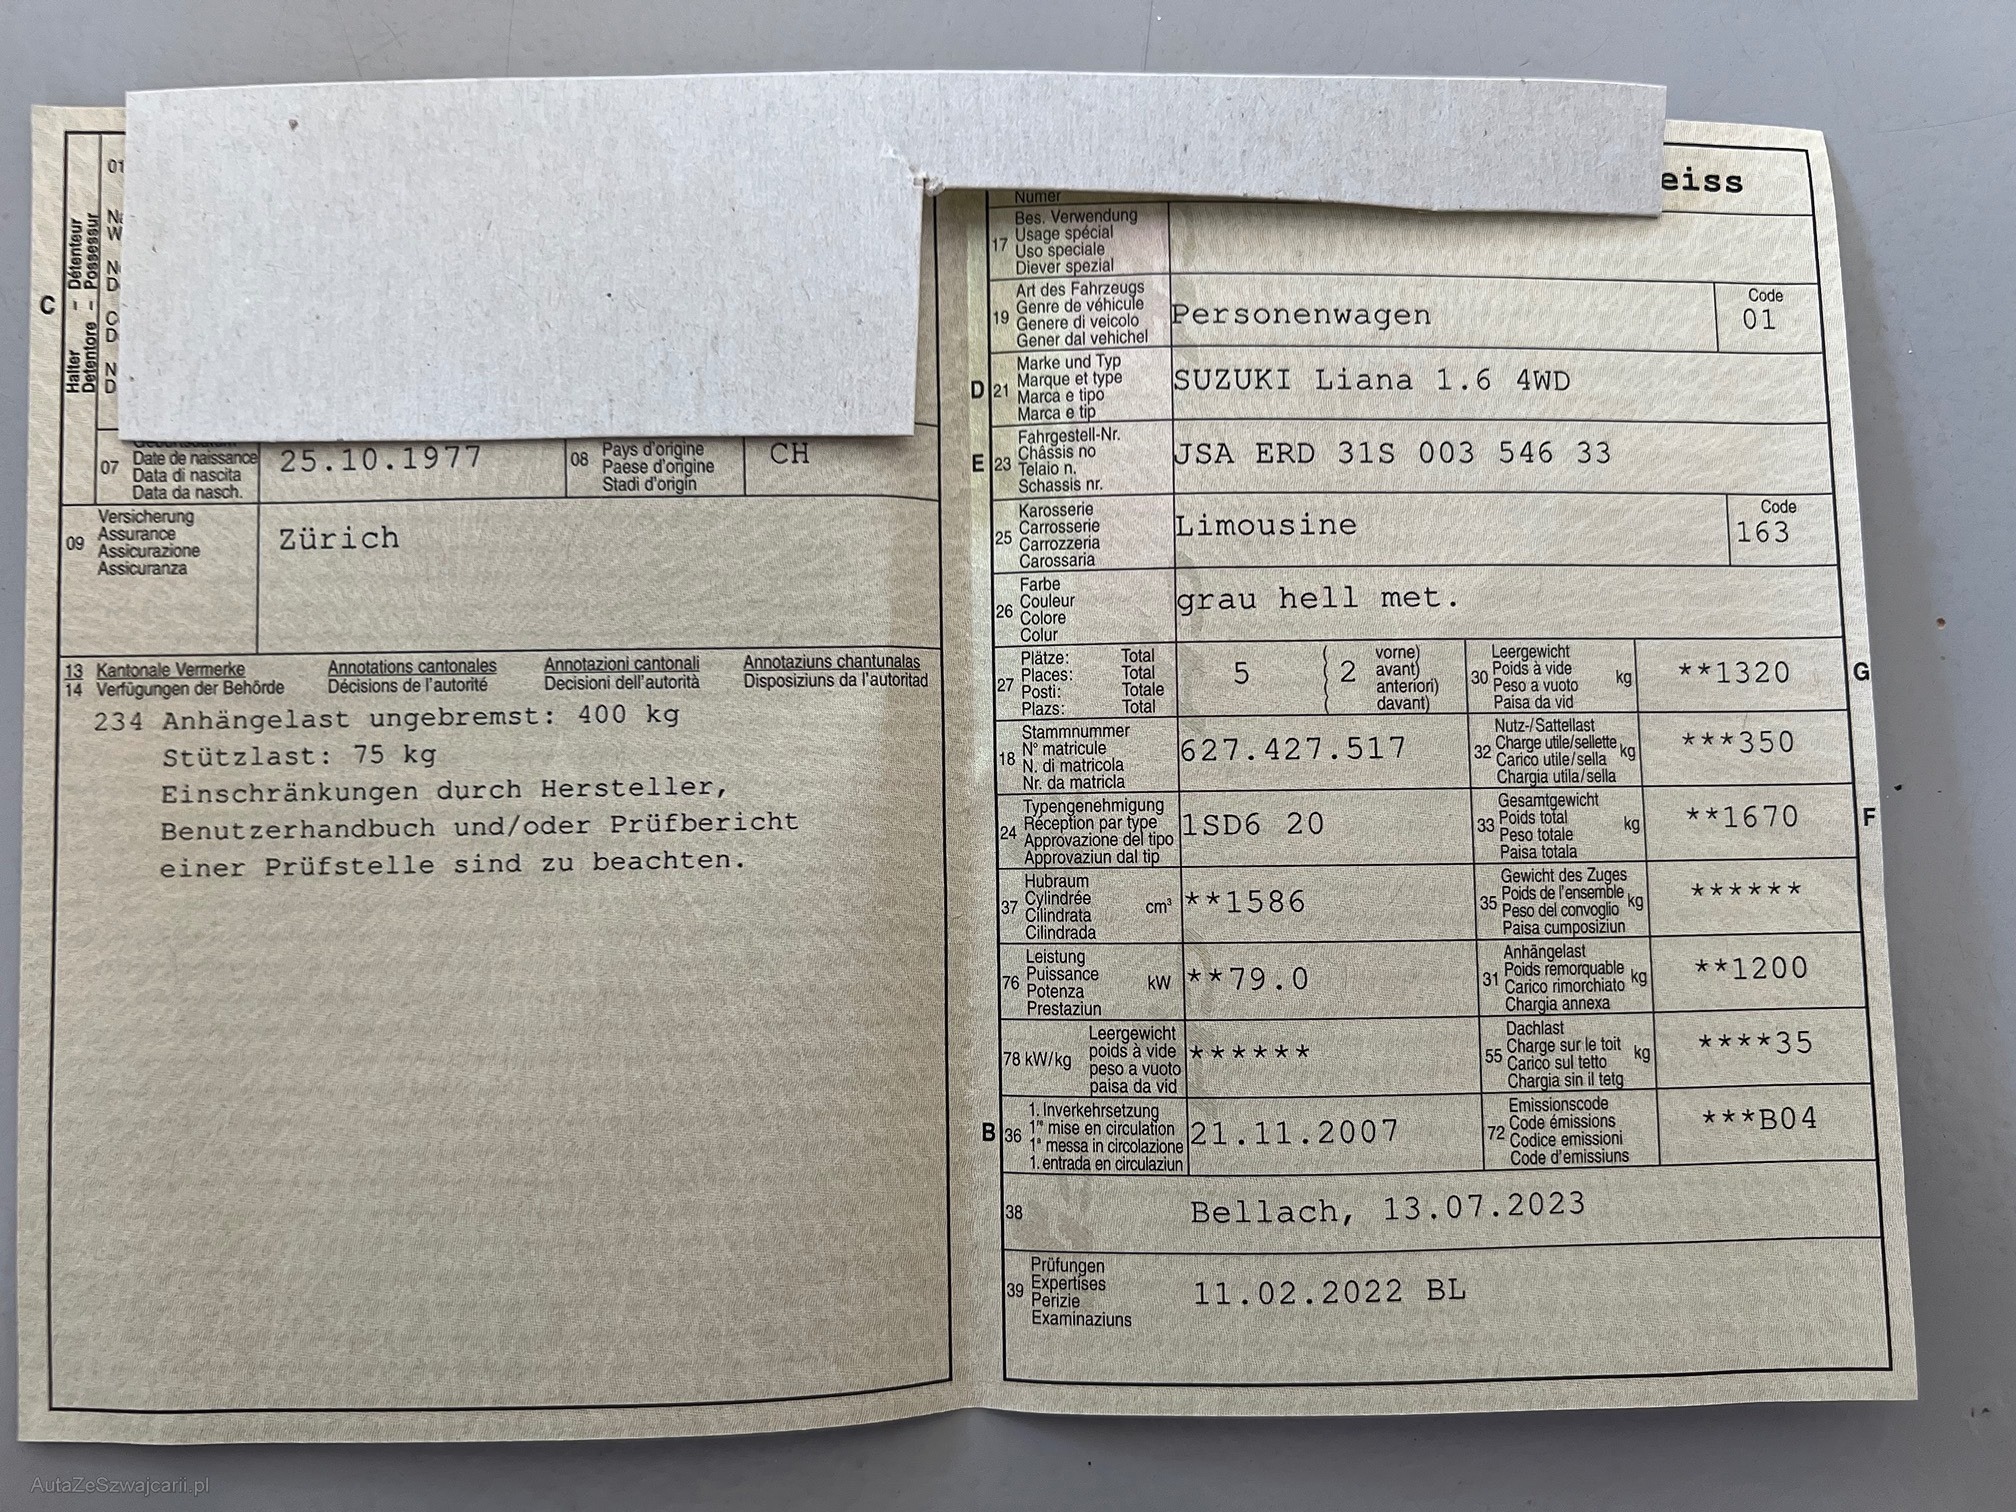 C
Halter – Détenteur
Detentore – Possesseur
01
07
Date de naissance
Data di nascita
Data da nasch.
25.10.1977
08
Pays d'origine
Paese d'origine
Stadi d'origin
CH
09
Versicherung
Assurance
Assicurazione
Assicuranza
Zürich
13 Kantonale Vermerke Annotations cantonales Annotazioni cantonali Annotaziuns chantunalas
14 Verfügungen der Behörde Décisions de l'autorité Decisioni dell'autorità Disposiziuns da l'autoritad
234 Anhängelast ungebremst: 400 kg
Stützlast: 75 kg
Einschränkungen durch Hersteller,
Benutzerhandbuch und/oder Prüfbericht
einer Prüfstelle sind zu beachten.
eiss
Numer
17
Bes. Verwendung
Usage spécial
Uso speciale
Diever spezial
19
Art des Fahrzeugs
Genre de véhicule
Genere di veicolo
Gener dal vehichel
Personenwagen
Code
01
D
21
Marke und Typ
Marque et type
Marca e tipo
Marca e tip
SUZUKI Liana 1.6 4WD
E
23
Fahrgestell-Nr.
Châssis no
Telaio n.
Schassis nr.
JSA ERD 31S 003 546 33
25
Karosserie
Carrosserie
Carrozzeria
Carossaria
Limousine
Code
163
26
Farbe
Couleur
Colore
Colur
grau hell met.
27
Plätze: Total
Places: Total
Posti: Totale
Plazs: Total
5
2
vorne)
avant)
anteriori)
davant)
30
Leergewicht
Poids à vide
Peso a vuoto
Paisa da vid
kg
**1320
G
18
Stammnummer
N° matricule
N. di matricola
Nr. da matricla
627.427.517
32
Nutz-/Sattellast
Charge utile/sellette
Carico utile/sella
Chargia utila/sella
kg
***350
24
Typengenehmigung
Réception par type
Approvazione del tipo
Approvaziun dal tip
1SD6 20
33
Gesamtgewicht
Poids total
Peso totale
Paisa totala
kg
**1670
F
37
Hubraum
Cylindrée
Cilindrata
Cilindrada
cm³
**1586
35
Gewicht des Zuges
Poids de l'ensemble
Peso del convoglio
Paisa cumposiziun
kg
******
76
Leistung
Puissance
Potenza
Prestaziun
kW
**79.0
31
Anhängelast
Poids remorquable
Carico rimorchiato
Chargia annexa
kg
**1200
78 kW/kg
Leergewicht
poids à vide
peso a vuoto
paisa da vid
******
55
Dachlast
Charge sur le toit
Carico sul tetto
Chargia sin il tetg
kg
****35
B
36
1. Inverkehrsetzung
1re mise en circulation
1a messa in circolazione
1. entrada en circulaziun
21.11.2007
72
Emissionscode
Code émissions
Codice emissioni
Code d'emissiuns
***B04
38
Bellach, 13.07.2023
39
Prüfungen
Expertises
Perizie
Examinaziuns
11.02.2022 BL
AutaZeSzwajcarii.pl